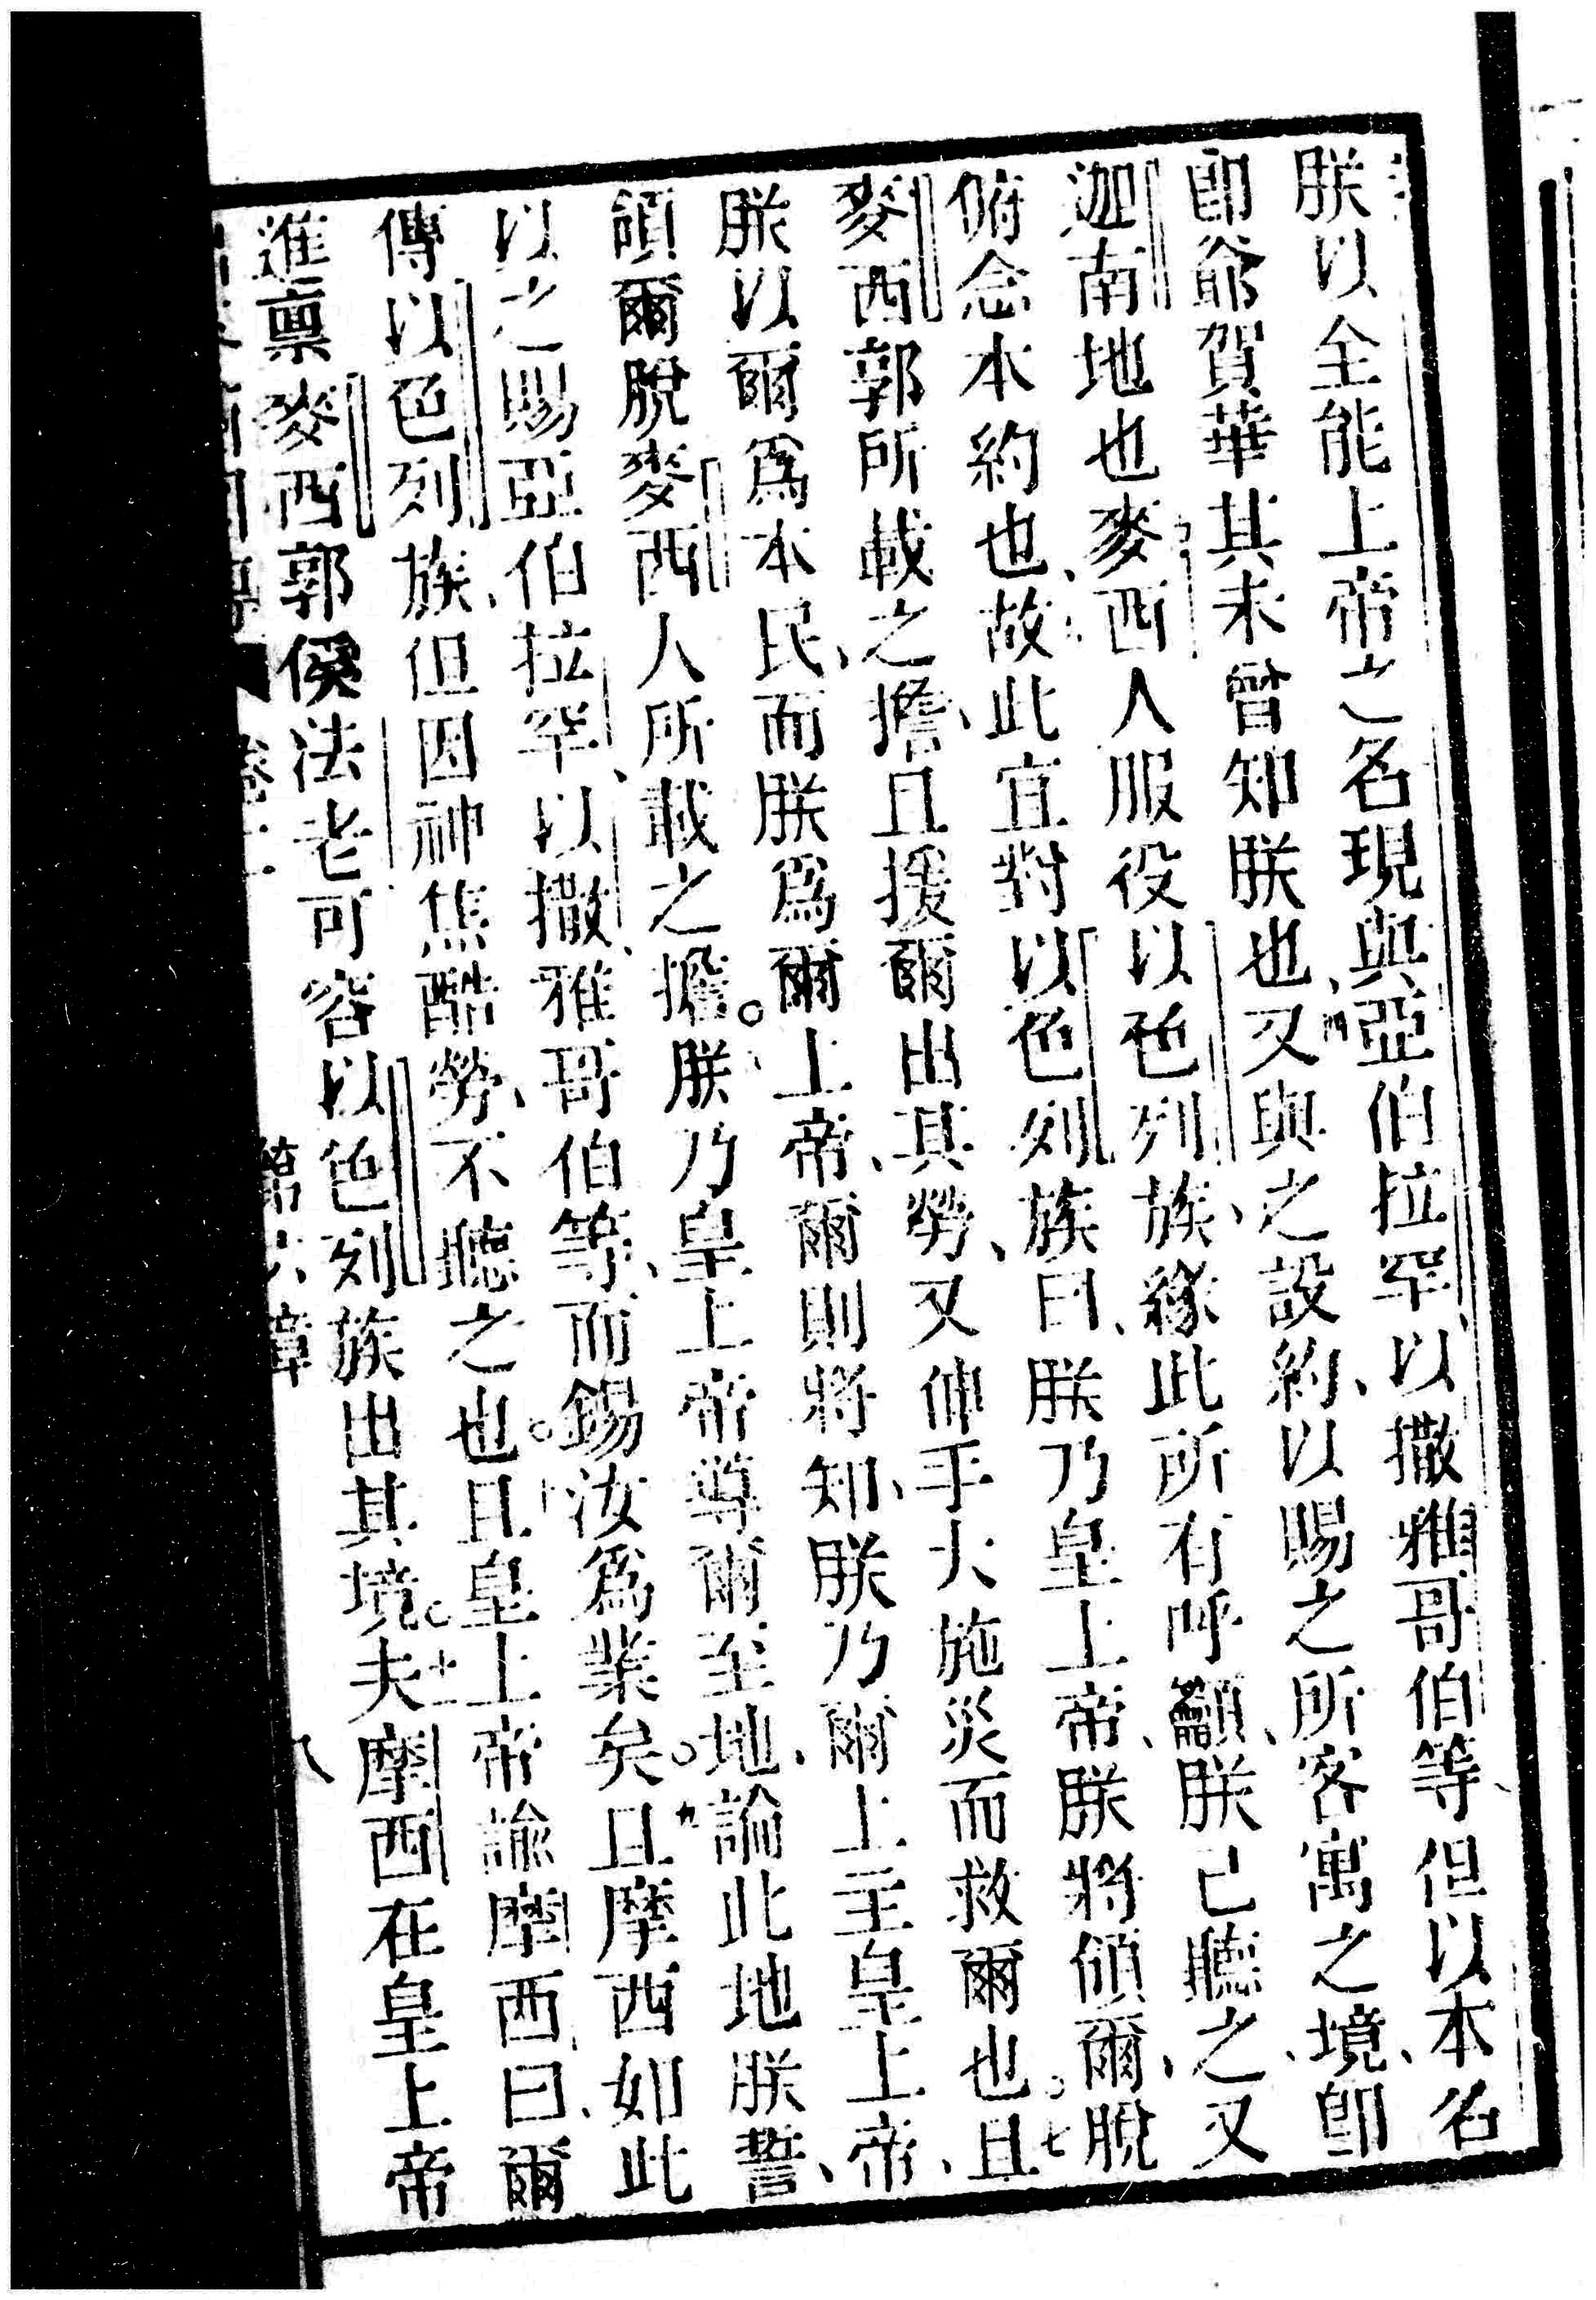 朕以全能上帝之名現與亞伯拉罕、以撒雅哥伯等但以本名
卽爺賀華其未曾知朕也、四又與之設約、以賜之所客寓之境、卽
迦南地也五麥西人服役以色列族、緣此所有呼籲、朕已聽之、又
俯念本約也、六故此宜對以色列族曰、朕乃皇上帝、朕將領爾、脫
麥西郭所載之擔、且援爾出其勞、又伸手大施災而救爾也。七且
朕以爾爲本民、而朕爲爾上帝、爾則將知、朕乃爾上主皇上帝、
領爾脫麥西人所載之擔。八朕乃皇上帝導爾至地、論此地朕誓、
以之賜亞伯拉罕、以撒、雅哥伯等、而錫汝爲業矣。九且摩西如此
傳以色列族、但因神焦酷勞、不聽之也。十且皇上帝諭摩西曰、爾
進稟麥西郭侯法老可容以色列族出其境。十二夫摩西在皇上帝
卷二 第六章 八